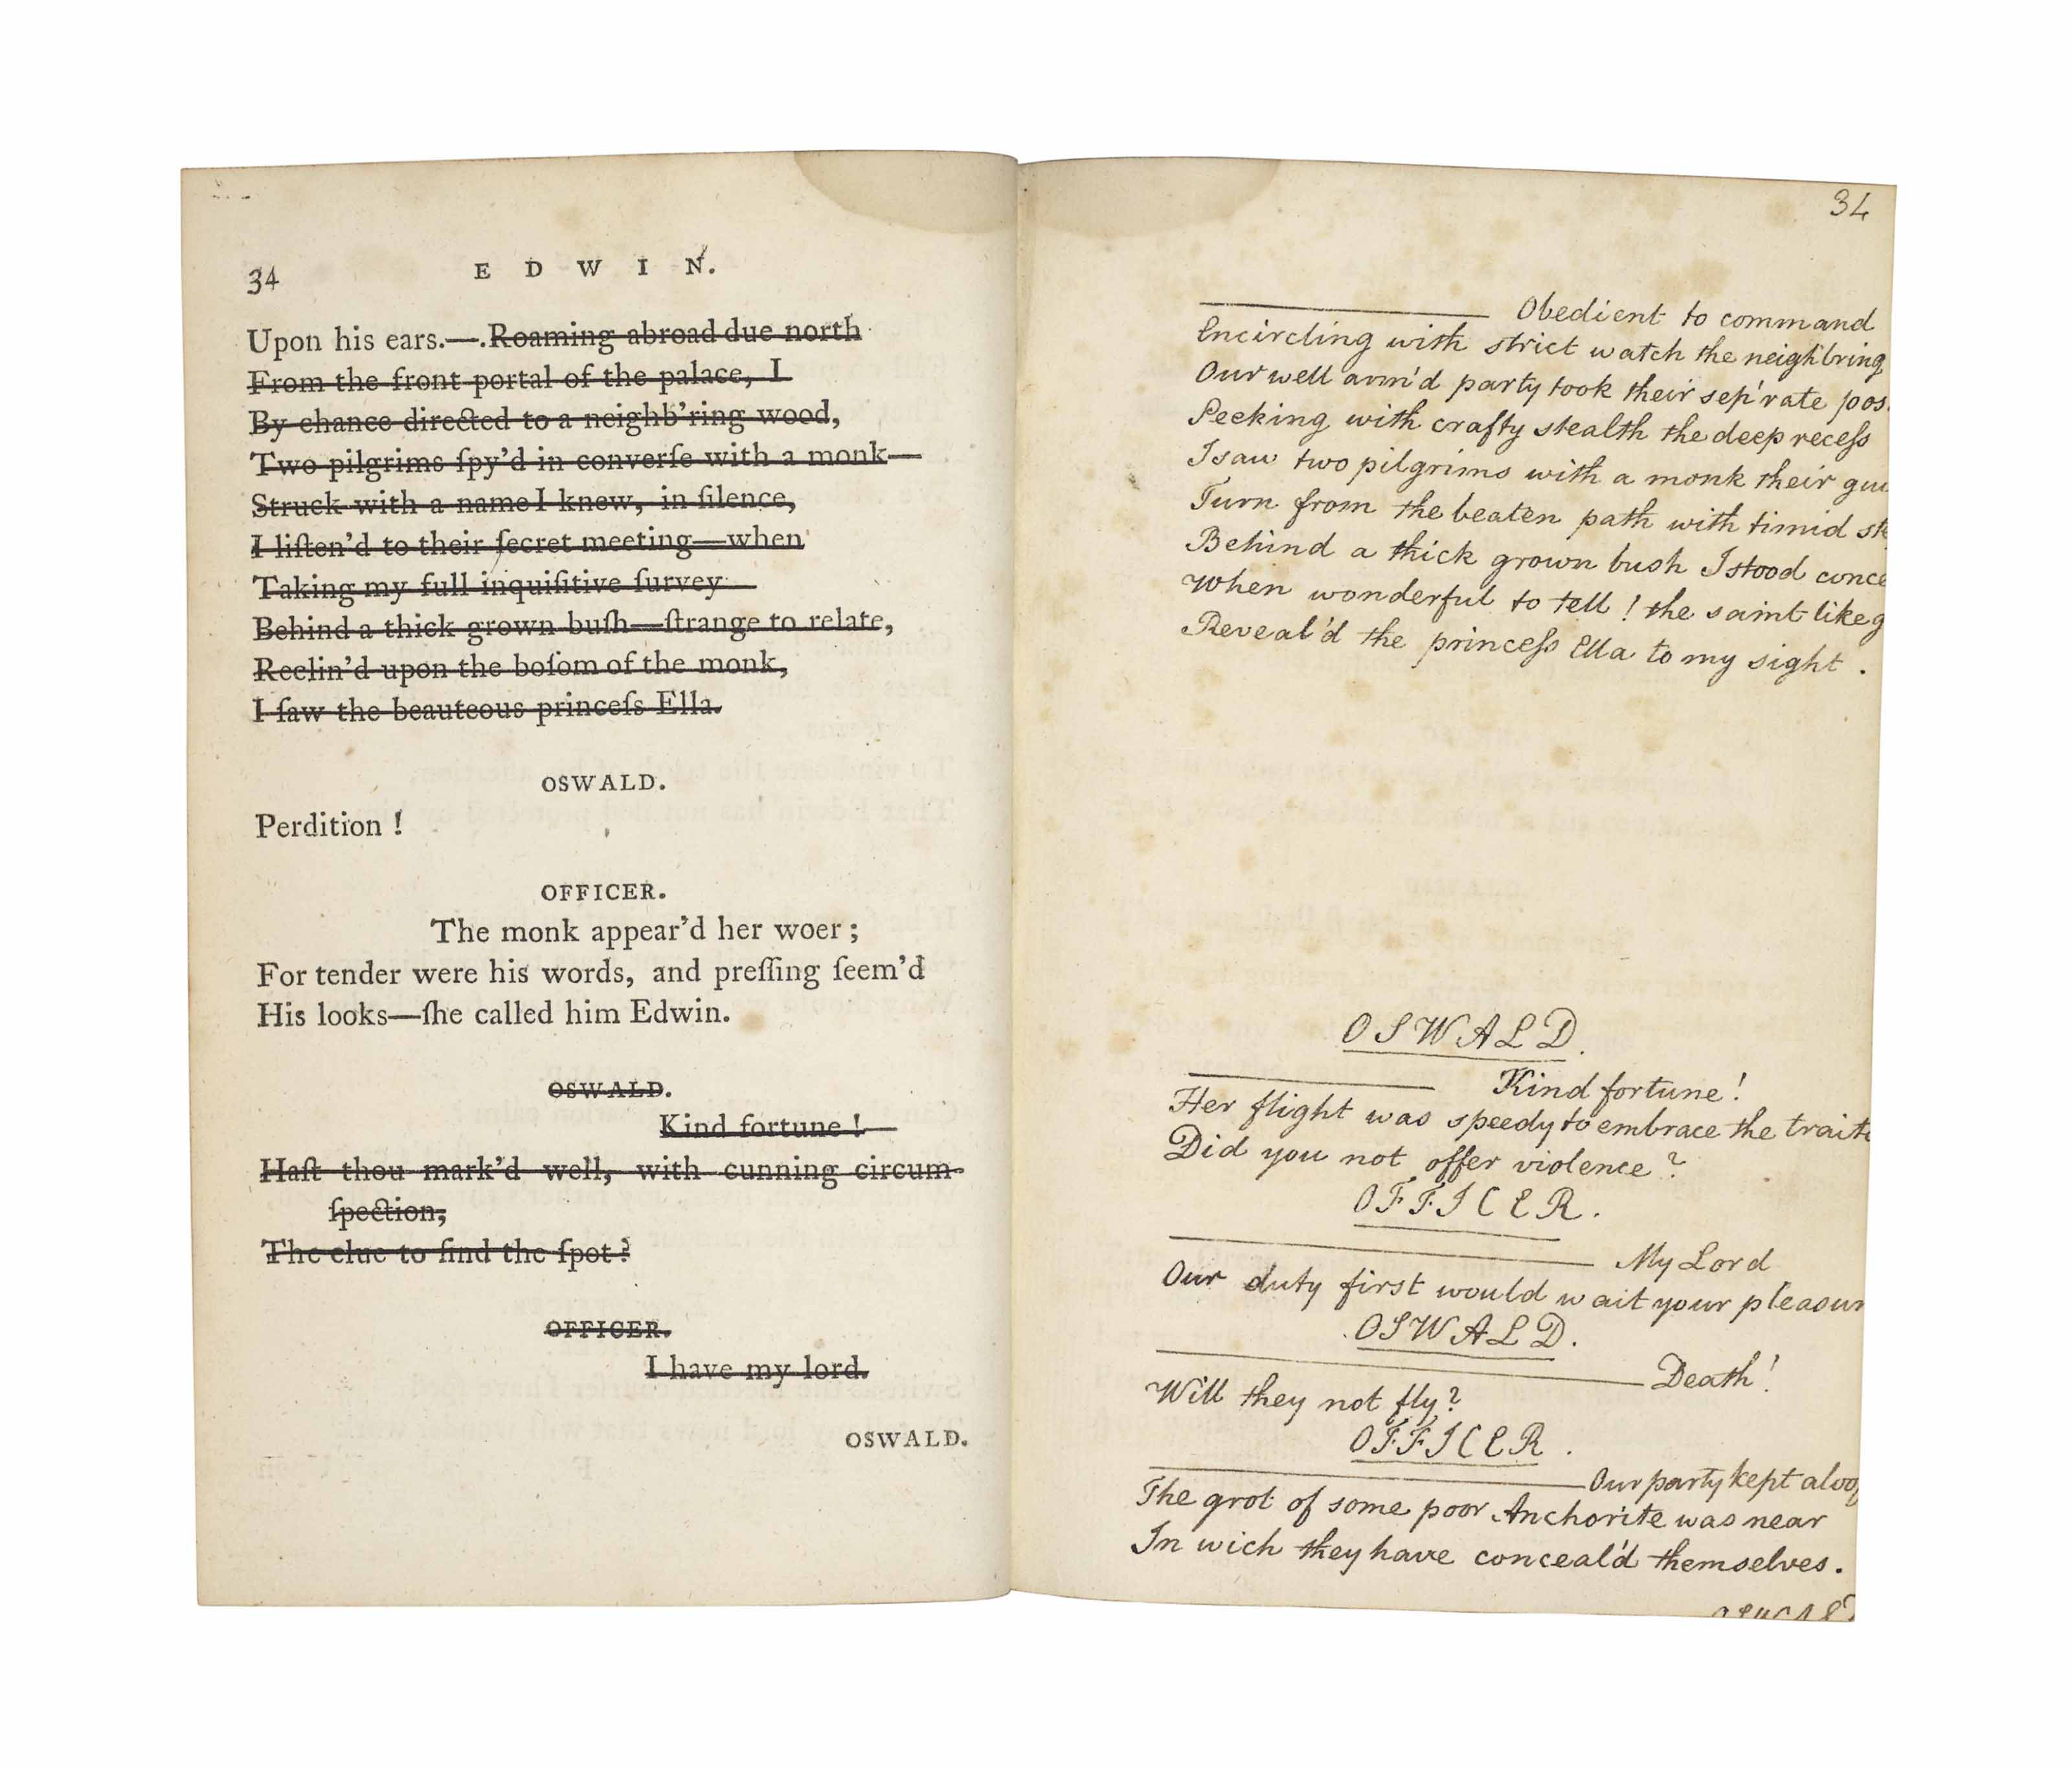 34 EDWIN.
Upon his ears.—.Roaming abroad due north
From the front portal of the palace, I
By chance directed to a neighb'ring wood,
Two pilgrims ſpy'd in converſe with a monk—
Struck with a name I knew, in ſilence,
I liſten'd to their ſecret meeting—when
Taking my full inquiſitive ſurvey—
Behind a thick grown buſh—ſtrange to relate,
Reclin'd upon the boſom of the monk,
I ſaw the beauteous princeſs Ella.
OSWALD.
Perdition !
OFFICER.
The monk appear'd her woer ;
For tender were his words, and preſſing ſeem'd
His looks—ſhe called him Edwin.
OSWALD.
Kind fortune !—
Haſt thou mark'd well, with cunning circum-
ſpection,
The clue to find the ſpot ?
OFFICER.
I have my lord.
OSWALD.
34
Obedient to command
Encircling with strict watch the neighb'ring
Our well arm'd party took their sep'rate pos
Seeking with crafty stealth the deep receſs
I saw two pilgrims with a monk their gui
Turn from the beaten path with timid ste
Behind a thick grown bush I stood conce
When wonderful to tell ! the saint like g
Reveal'd the princeſs Ella to my sight .
OSWALD.
Kind fortune !
Her flight was speedy to embrace the traito
Did you not offer violence ?
OFFICER.
My Lord
Our duty first would wait your pleasur
OSWALD.
Death !
Will they not fly ?
OFFICER .
Our party kept aloof
The grot of some poor Anchorite was near
In wich they have conceal'd themselves .